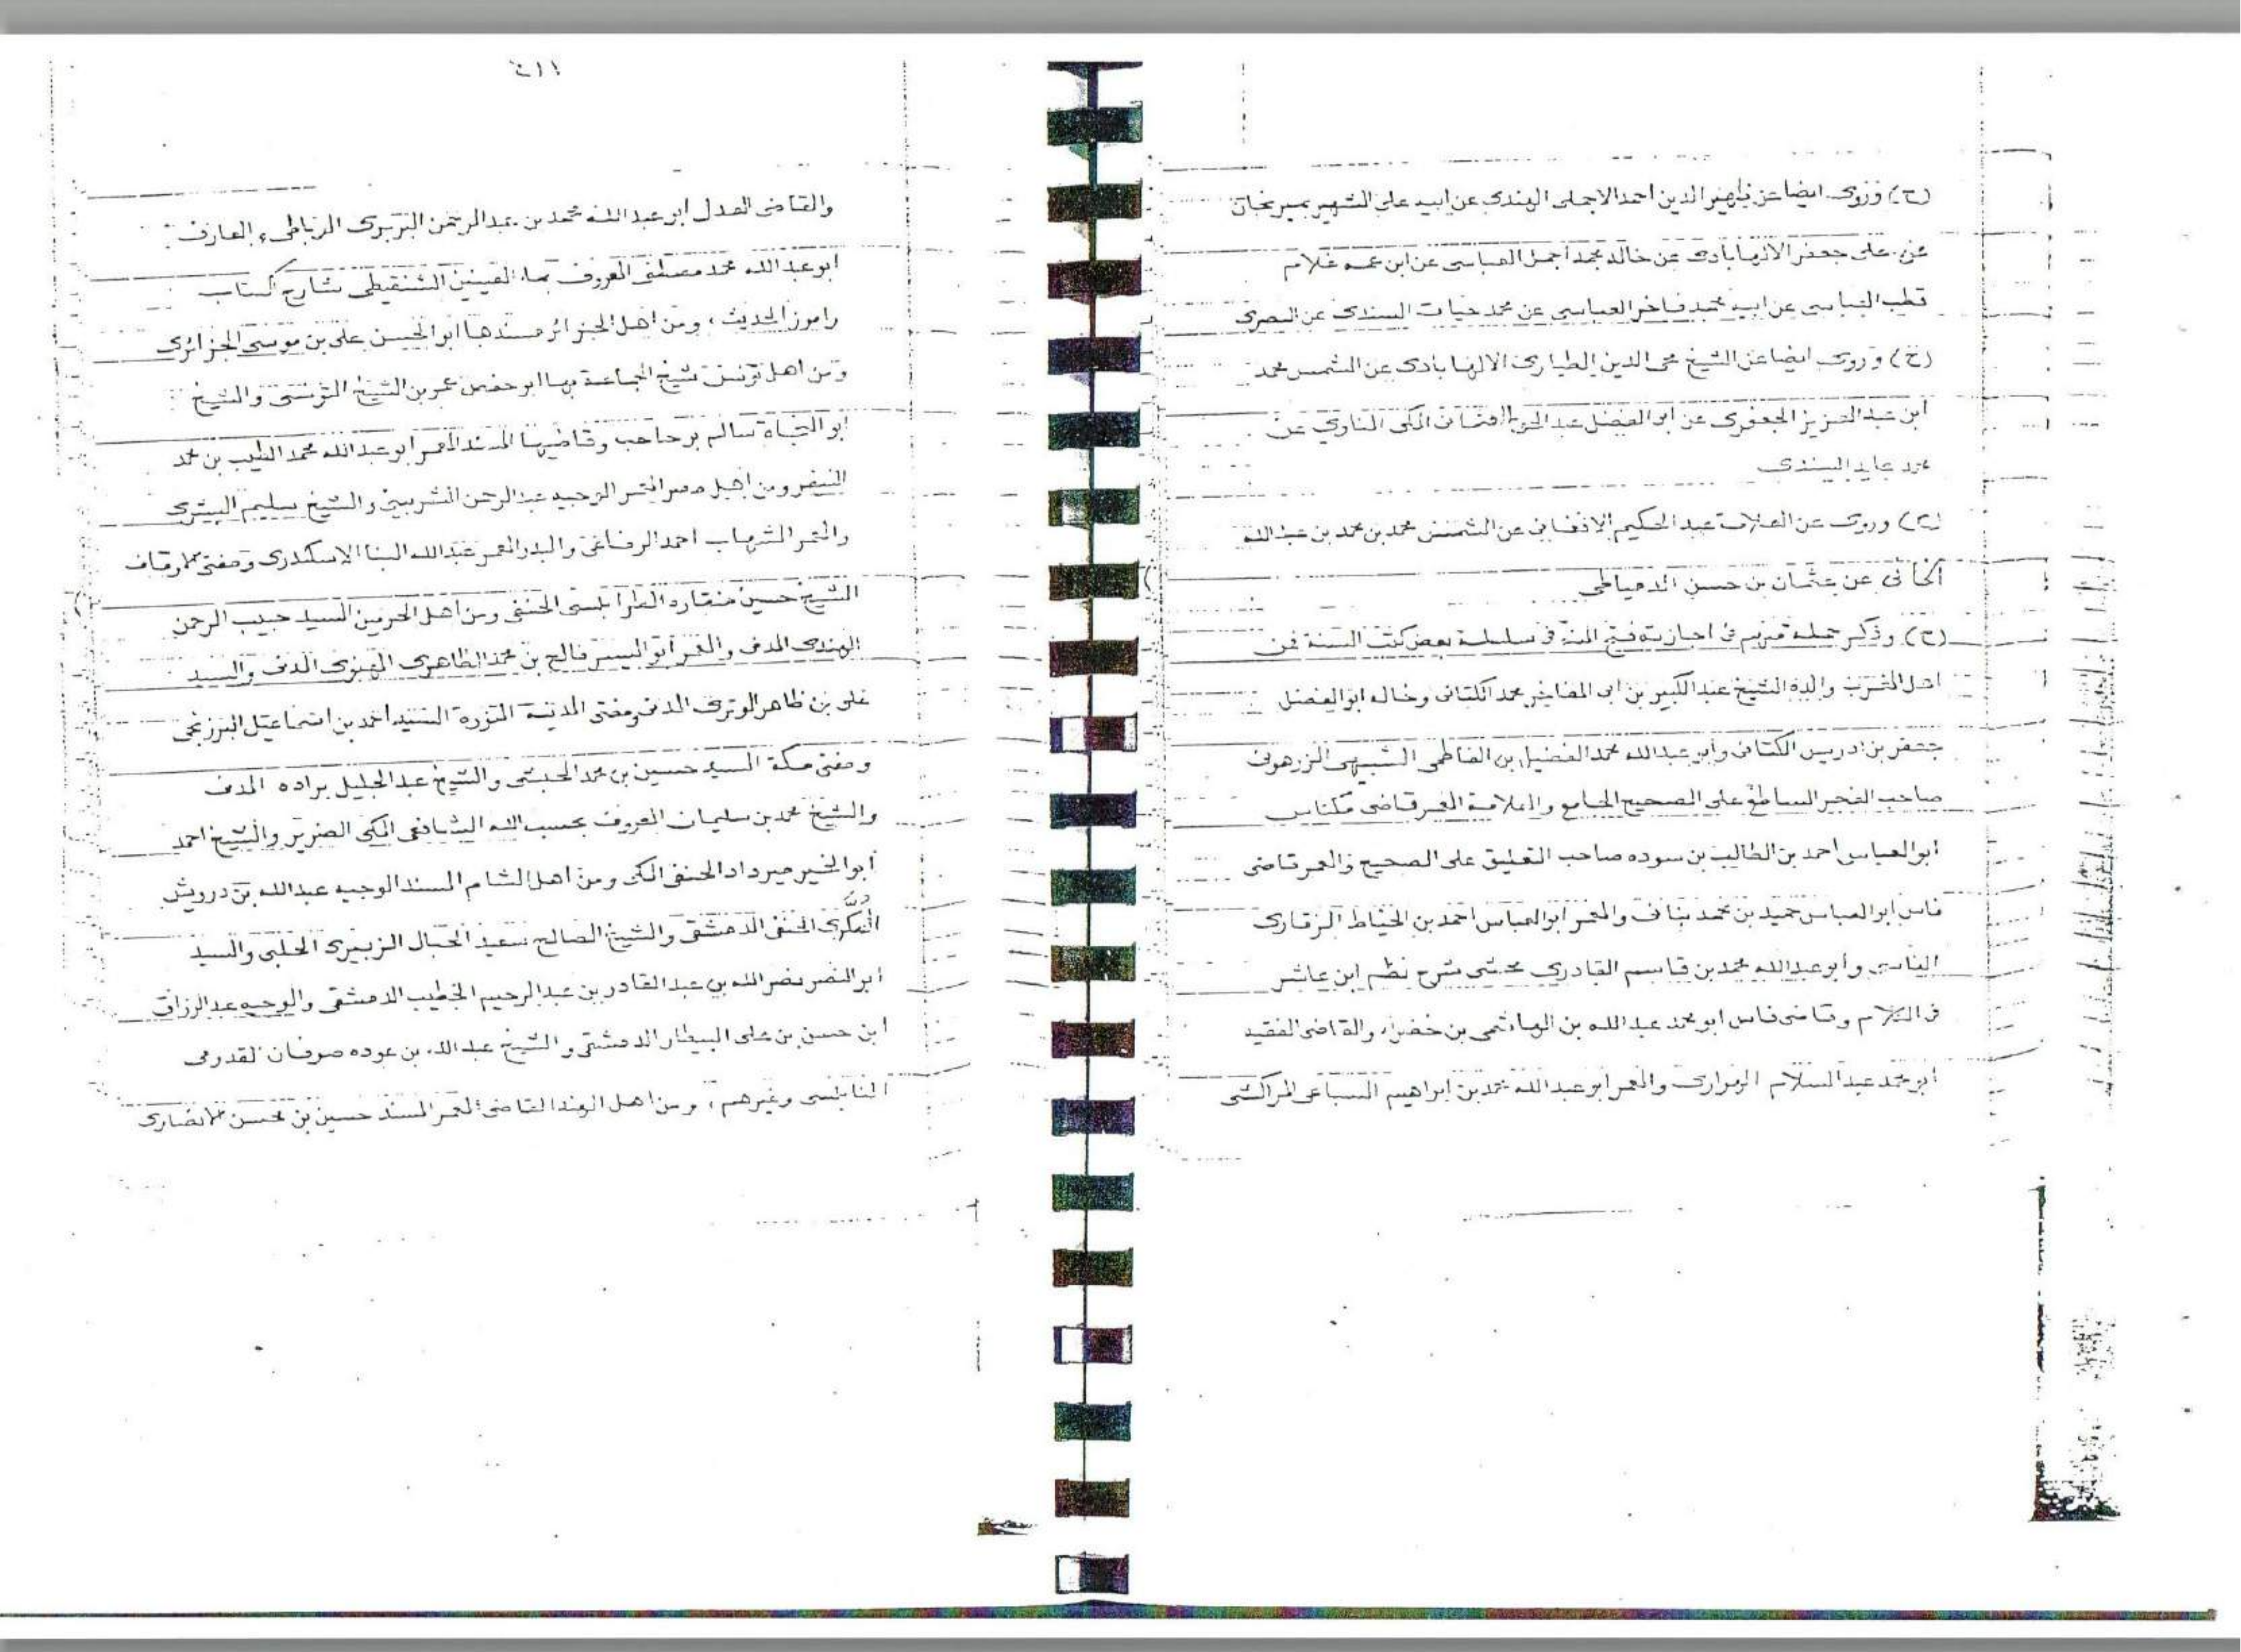 (ح) وروى ايضا عن ظهير الدين احمد الاجملى الهندى عن ابيه على الشهير بمير نجان
عن على جعفر الالهابادى عن خاله محمد اجمل العباسى عن ابن عمه غلام
قطب العباسى عن ابيه محمد فاخر العباسى عن محمد حيات السندى عن البصرى
(ح) وروى ايضا عن الشيخ محى الدين الطيارى الالهابادى عن الشمس محمد
ابن عبد العزيز الجعفرى عن ابو الفضل عبد الحق العثمانى المكى عن
محمد عابد السندى
(ح) وروى عن العلامة عبد الحكيم الافغانى عن الشمس محمد بن محمد بن عبد الله
الخانى عن عثمان بن حسن الدمياطى
(ح) وذكر جملة منهم فى اجازته فتح المنة فى سلسلة بعض كتب السنة فمن
اهل المغرب والده الشيخ عبد الكبير بن ابى المفاخر محمد الكتانى وخاله ابو الفضل
جعفر بن ادريس الكتانى وابو عبد الله محمد الفضيل بن الفاطمى الشبيهى الزرهونى
صاحب الفجر الساطع على الصحيح الجامع والعلامة المعمر قاضى مكناس
ابو العباس احمد بن الطالب بن سوده صاحب التعليق على الصحيح والمعمر قاضى
فاس ابو العباس حميد بن محمد بنانى والمعمر ابو العباس احمد بن الخياط الزقارى
الفاسى وأبو عبد الله محمد بن قاسم القادرى محشى شرح نظم ابن عاشر
فى الكلام وقاضى فاس ابو محمد عبد الله بن الهاشمى بن خضراء والقاضى الفقيه
ابو محمد عبد السلام الهوارى والمعمر ابو عبد الله محمد بن ابراهيم السباعى المراكشى
والقاضى العدل ابو عبد الله محمد بن عبد الرحمن البريرى الرباطى، العارف
ابو عبد الله محمد مصطفى المعروف بماء العينين الشنقيطى شارح كتاب
راموز الحديث، ومن اهل الجزائر مسندها ابو الحسن على بن موسى الجزائرى
ومن اهل تونس شيخ الجماعة بها ابو حفص عمر بن الشيخ التونسى والشيخ
ابو النجاة سالم بوحاجب وقاضيها المسند المعمر ابو عبد الله محمد الطيب بن محمد
النيفر ومن اهل مصر الوجيه عبد الرحمن الشربينى والشيخ سليم البشرى
والمعمر الشهاب احمد الرفاعى والبدر المعمر عبد الله البنا الاسكندرى ومفتى الاوقاف
الشيخ حسين منقاره الطرابلسى الحنفى ومن اهل الحرمين السيد حبيب الرحمن
الهندى المدنى والمعمر ابو اليسر فالح بن محمد الظاهرى المهنوى المدنى والسيد
على بن ظاهر الوترى المدنى ومفتى المدينة المنورة السيد احمد بن اسماعيل البرزنجى
ومفتى مكة السيد حسين بن محمد الحبشى والشيخ عبد الجليل براده المدنى
والشيخ محمد بن سليمان المعروف بحسب الله الشافعى المكى الضرير والشيخ احمد
أبو الخير ميرداد الحنفى المكى ومن اهل الشام المسند الوجيه عبد الله بن درويش
السُّكرى الحنفى الدمشقى والشيخ الصالح سعيد الحبال الزبيرى الحلبى والسيد
ابو النصر نصر الله بن عبد القادر بن عبد الرحيم الخطيب الدمشقى والوجيه عبد الرزاق
ابن حسن بن على البيطار الدمشقى والشيخ عبد الله بن عوده صوفان القدومى
النابلسى وغيرهم، ومن اهل الهند القاضى المعمر المسند حسين بن محسن الانصارى